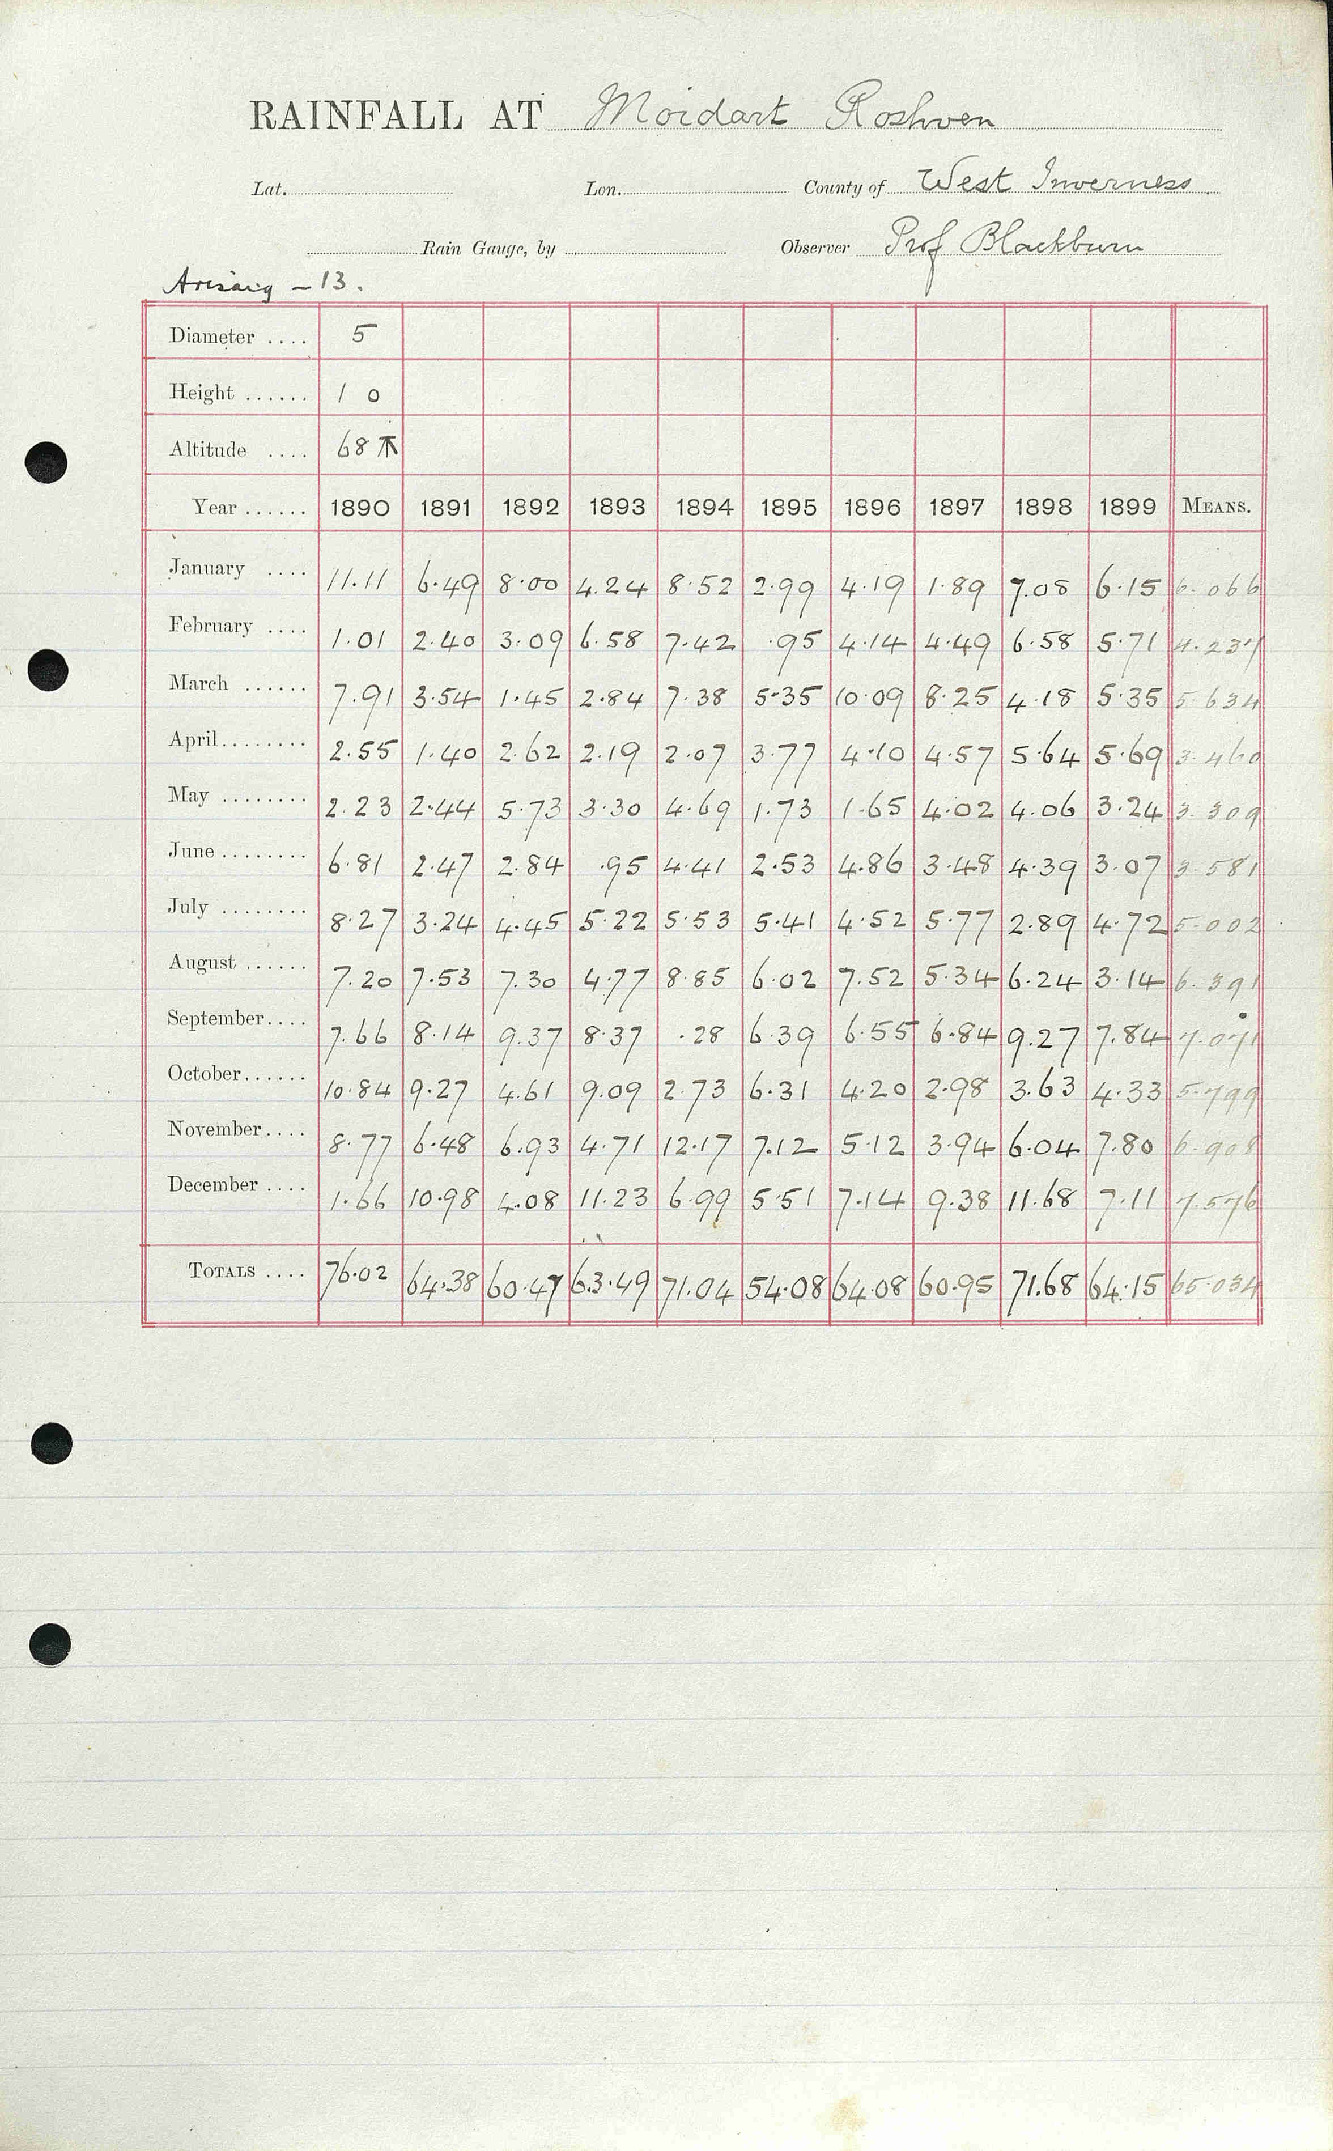 RAINFALL AT Moidart Roshven
Lat. Lon. County of West Inverness
Rain Gauge, by Observer Prof Blackburn
Arisaig - 13.
Diameter .... 5
Height ...... 1 0
Altitude .... 68
Year ...... 1890 1891 1892 1893 1894 1895 1896 1897 1898 1899 MEANS.
January .... 11.11 6.49 8.00 4.24 8.52 2.99 4.19 1.89 7.08 6.15 6.066
February .... 1.01 2.40 3.09 6.58 7.42 .95 4.14 4.49 6.58 5.71 4.237
March ...... 7.91 3.54 1.45 2.84 7.38 5.35 10.09 8.25 4.18 5.35 5.634
April........ 2.55 1.40 2.62 2.19 2.07 3.77 4.10 4.57 5.64 5.69 3.460
May ........ 2.23 2.44 5.73 3.30 4.69 1.73 1.65 4.02 4.06 3.24 3.309
June ........ 6.81 2.47 2.84 .95 4.41 2.53 4.86 3.48 4.39 3.07 3.581
July ........ 8.27 3.24 4.45 5.22 5.53 5.41 4.52 5.77 2.89 4.72 5.002
August ...... 7.20 7.53 7.30 4.77 8.85 6.02 7.52 5.34 6.24 3.14 6.391
September.... 7.66 8.14 9.37 8.37 .28 6.39 6.55 6.84 9.27 7.84 7.071
October...... 10.84 9.27 4.61 9.09 2.73 6.31 4.20 2.98 3.63 4.33 5.799
November.... 8.77 6.48 6.93 4.71 12.17 7.12 5.12 3.94 6.04 7.80 6.908
December .... 1.66 10.98 4.08 11.23 6.99 5.51 7.14 9.38 11.68 7.11 7.576
TOTALS .... 76.02 64.38 60.47 63.49 71.04 54.08 64.08 60.95 71.68 64.15 65.034